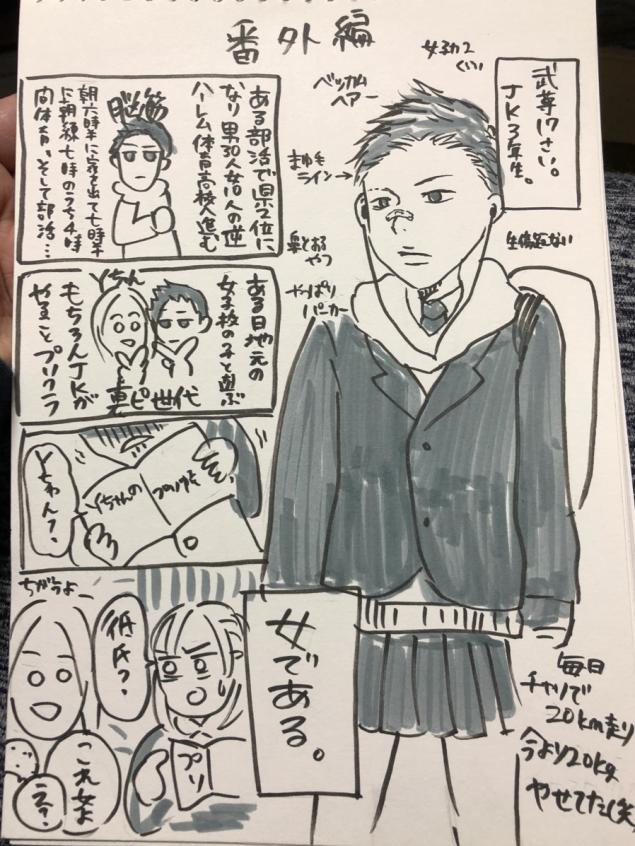 番外編
武尊17さい。
JK3年生。
女子力2
くらい
ベッカム
ヘアー
まゆ毛
ライン→
鼻とおる
やつ
やっぱり
パーカー
ある部活で県2位に
なり男30人女10人の逆
ハーレム体育高校へ進む
脳筋
朝六時半に家を出て七時半
に朝練七時のうち4時
間体育、そして部活…
ある日地元の
女子校の子と遊ぶ
もちろんJKが
やることプリクラ
Yちん
世代
Yちゃんの
プリクラ
Yちゃん?
ちがうよー
彼氏?
これ女よ
え?
プリ
女である。
毎日
チャリで
20km走り
今より20kg
やせてた(笑)